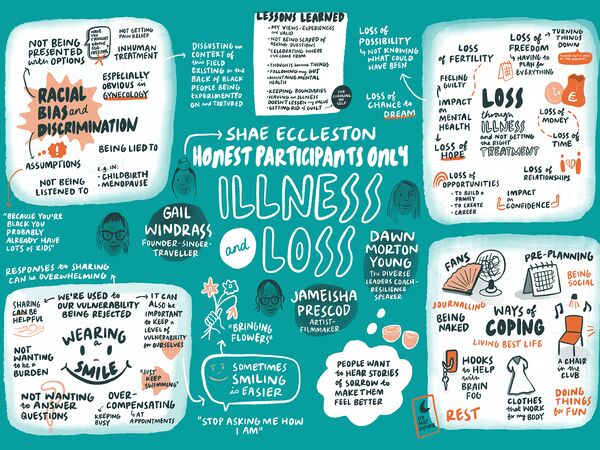 NOT BEING
PRESENTED
with OPTIONS
HAVE YOU
THOUGHT
ABOUT
EGG
FREEZING
NOT GETTING
PAIN RELIEF
INHUMAN
TREATMENT
RACIAL
BIAS and
DISCRIMINATION
ESPECIALLY
OBVIOUS in
GYNECOLOGY
ASSUMPTIONS
BEING LIED TO
NOT BEING
LISTENED TO
e.g. IN:
• CHILDBIRTH
• MENOPAUSE
"BECAUSE YOU'RE
BLACK YOU
PROBABLY
ALREADY HAVE
LOTS of KIDS"
DISGUSTING in
CONTEXT of
this FIELD
EXISTING on the
BACK of BLACK
PEOPLE BEING
EXPERIMENTED
ON and TORTURED
LESSONS LEARNED
• MY VIEWS + EXPERIENCES
are VALID
• NOT BEING SCARED OF
ASKING QUESTIONS
• CELEBRATING WHERE
I'VE COME FROM
• THOUGHTS become THINGS
• FOLLOWING my GUT
• MAINTAINING MENTAL
HEALTH
• KEEPING BOUNDARIES
• HAVING an ILLNESS
DOESN'T LESSEN my VALUE
• GETTING RID of GUILT
FOR
CHOOSING
MY
SELF
LOSS of
POSSIBILITY
NOT KNOWING
WHAT COULD
HAVE BEEN
LOSS of
CHANCE to
DREAM
LOSS
of FERTILITY
LOSS of
FREEDOM
HAVING to
PLAN for
EVERYTHING
TURNING
THINGS
DOWN
FEELING
GUILTY
IMPACT
on
MENTAL
HEALTH
LOSS of
HOPE
LOSS
through
ILLNESS
and NOT GETTING
the RIGHT
TREATMENT
LOSS of
MONEY
LOSS of
TIME
LOSS of
OPPORTUNITIES
• TO BUILD a
FAMILY
• TO CREATE
• CAREER
LOSS of
RELATIONSHIPS
IMPACT
on
CONFIDENCE
SHAE ECCLESTON
HONEST PARTICIPANTS ONLY
ILLNESS
and
LOSS
GAIL
WINDRASS
FOUNDER-SINGER-
TRAVELLER
DAWN
MORTON
YOUNG
The DIVERSE
LEADERS COACH-
RESILIENCE
SPEAKER
JAMEISHA
PRESCOD
ARTIST-
FILMMAKER
"BRINGING
FLOWERS"
SOMETIMES
SMILING
is EASIER
"STOP ASKING ME HOW
I AM"
PEOPLE WANT
to HEAR STORIES
of SORROW to
MAKE THEM
FEEL BETTER
RESPONSES to SHARING
CAN be OVERWHELMING
SHARING
CAN BE
HELPFUL
WE'RE USED to
OUR VULNERABILITY
BEING REJECTED
IT CAN
ALSO be
IMPORTANT
to KEEP a
LEVEL of
VULNERABILITY
for OURSELVES
WEARING
a
SMILE
NOT
WANTING
to be a
BURDEN
"JUST
KEEP
SWIMMING"
NOT WANTING
to ANSWER
QUESTIONS
OVER-
COMPENSATING
KEEPING
BUSY
at
APPOINTMENTS
FANS
PRE-PLANNING
BEING
SOCIAL
JOURNALLING
BEING
NAKED
WAYS of
COPING
LIVING BEST LIFE
HOOKS
to HELP
with
BRAIN
FOG
A CHAIR
in the
CLUB
CLOTHES
that WORK
for my BODY
DOING
THINGS
for FUN
REST
DO NOT
DISTURB